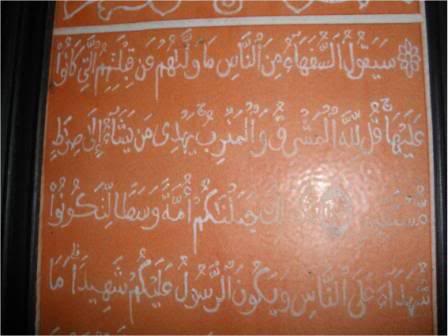 سَيَقُولُ ٱلسُّفَهَآءُ مِنَ ٱلنَّاسِ مَا وَلَّىٰهُمْ عَن قِبْلَتِهِمُ ٱلَّتِى كَانُوا۟
عَلَيْهَا ۚ قُل لِّلَّهِ ٱلْمَشْرِقُ وَٱلْمَغْرِبُ ۚ يَهْدِى مَن يَشَآءُ إِلَىٰ صِرَٰطٍ
مُّسْتَقِيمٍ وَكَذَٰلِكَ جَعَلْنَٰكُمْ أُمَّةً وَسَطًا لِّتَكُونُوا۟
شُهَدَآءَ عَلَى ٱلنَّاسِ وَيَكُونَ ٱلرَّسُولُ عَلَيْكُمْ شَهِيدًا ۗ وَمَا